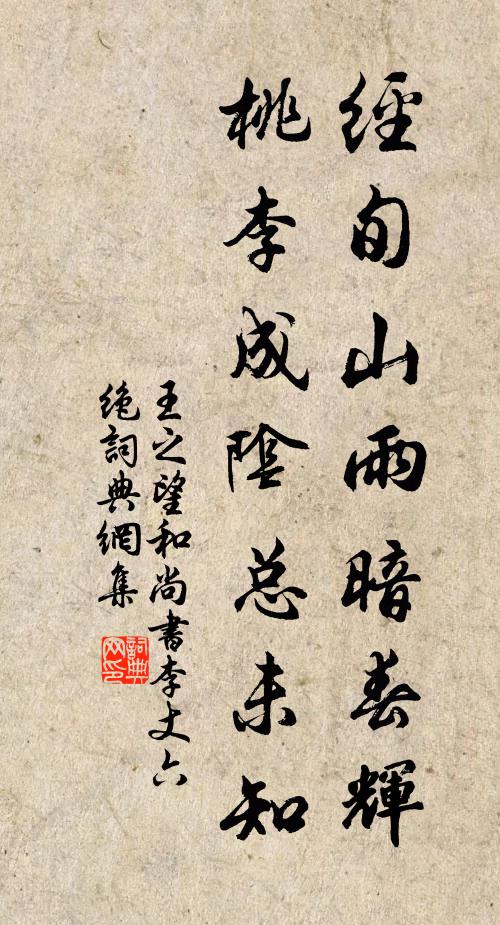 經旬山雨暗春輝
桃李成陰总未知
王之望和尚書李丈六
绝詞典網集
詞典
网印